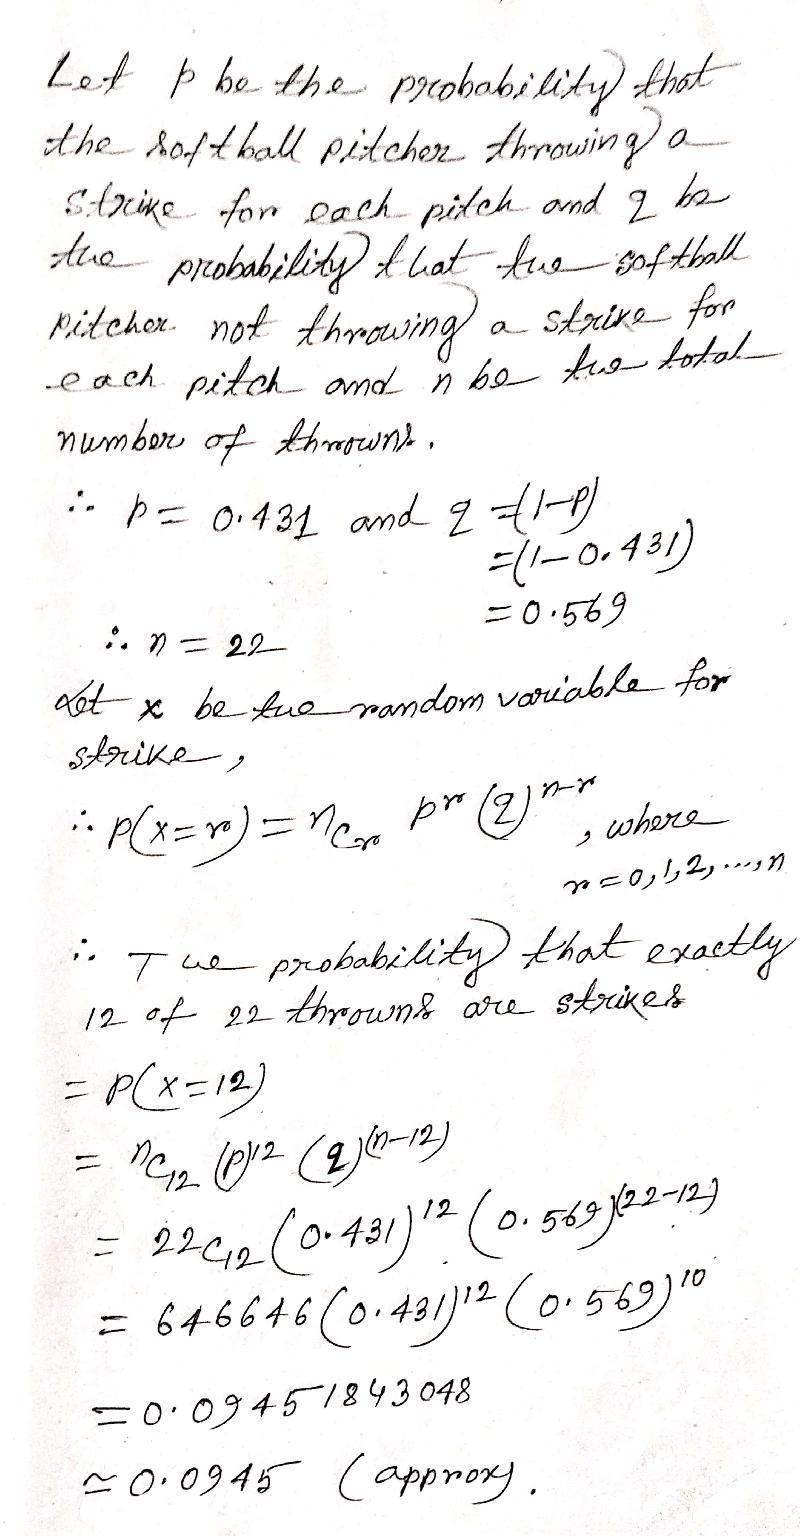 Let p be the probability that
the softball pitcher throwing a
strike for each pitch and q be
the probability that the softball
pitcher not throwing a strike for
each pitch and n be the total
number of throwns.
∴ p = 0.431 and q = (1-p)
= (1-0.431)
= 0.569
∴ n = 22
Let x be the random variable for
strike,
∴ P(x=r) = nCr p^r (q)^n-r, where
r = 0,1,2,...,n
∴ The probability that exactly
12 of 22 throwns are strikes
= P(x=12)
= nC12 (p)^12 (q)^(n-12)
= 22C12 (0.431)^12 (0.569)^(22-12)
= 646646 (0.431)^12 (0.569)^10
= 0.09451843048
≃ 0.0945 (approx).